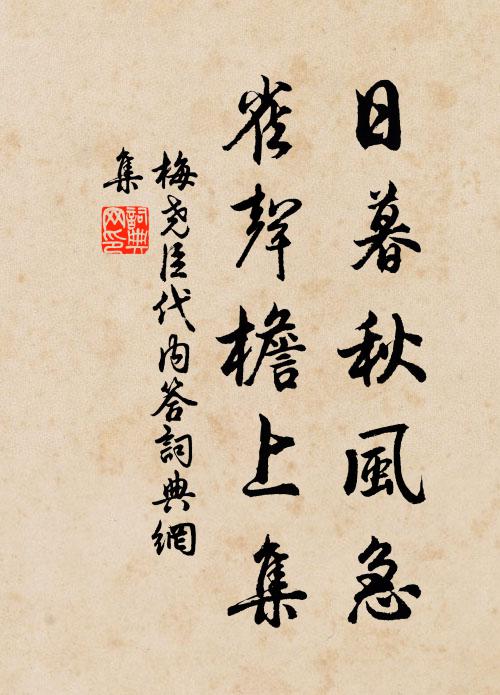 日暮秋風急
雀聲檐上集
梅堯臣代內答詞典網
集
詞典網印